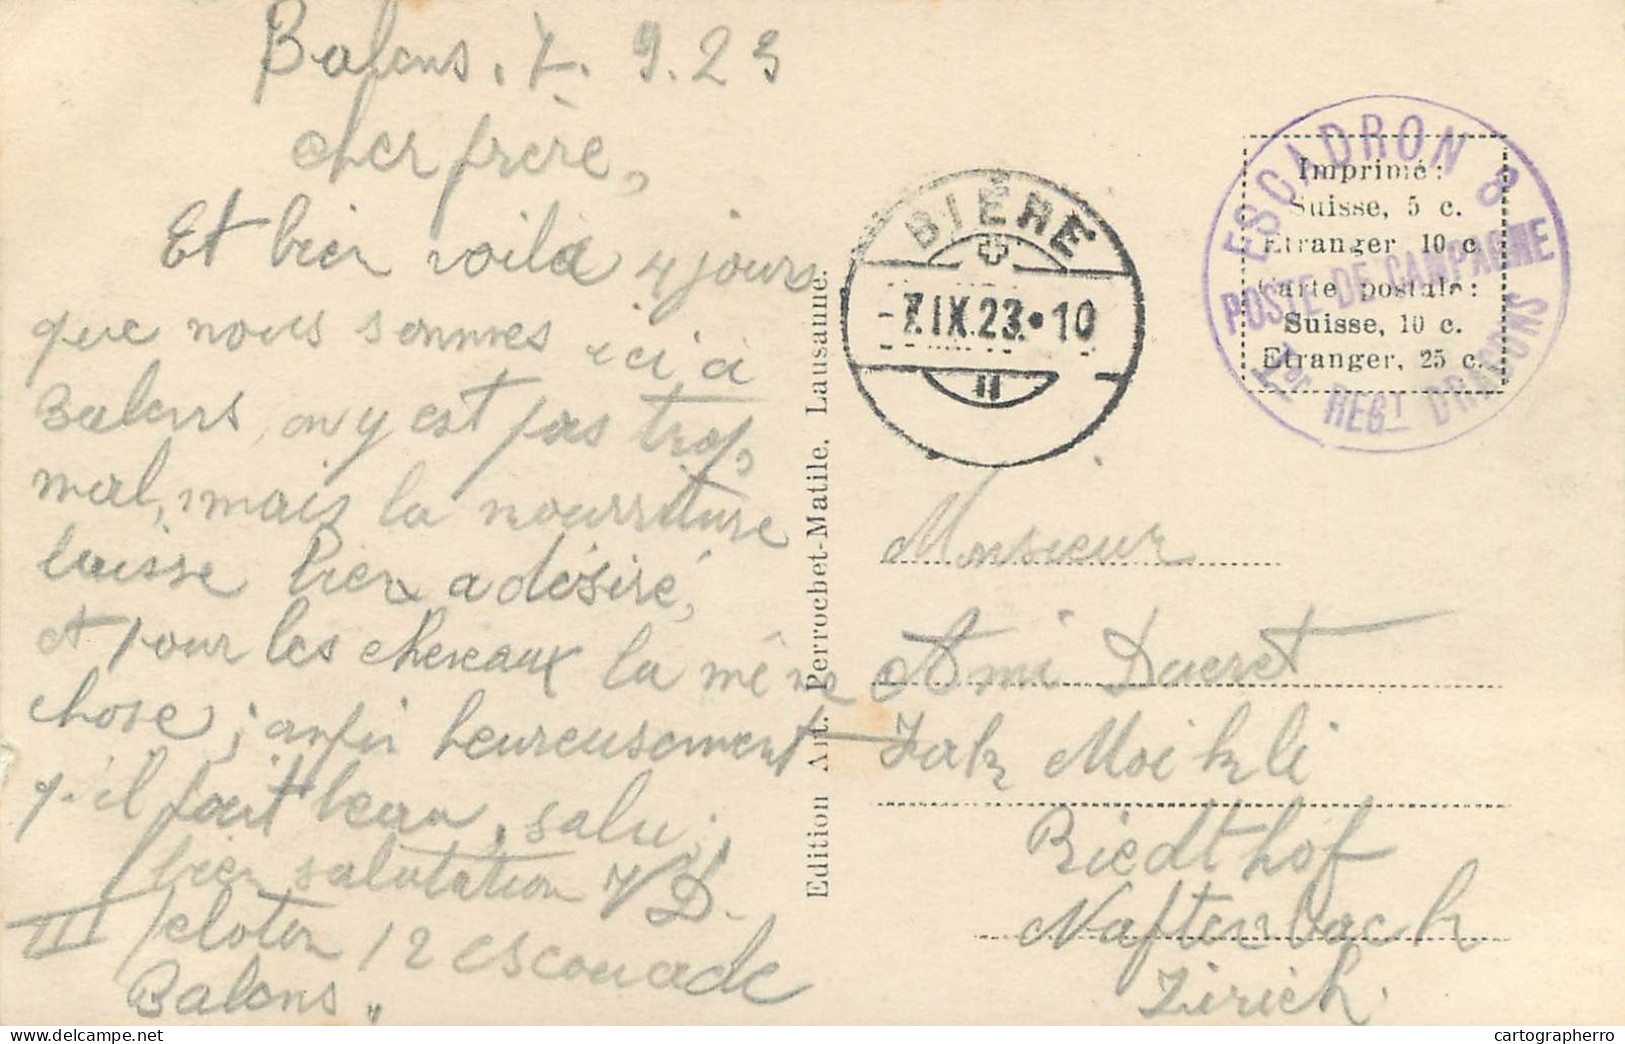 Balens. 7. 9. 23
cher frère,
Et bien voilà 4 jours
que nous sommes ici à
Balens, on y est pas trop,
mal, mais la nourriture
laisse bien a désiré,
et pour les chevaux la même
chose; anfin heureusement
q'il fait beau, salu;
bien salutation D.
III peloton 12 escouade
Balens.
Edition Art. Perrochet-Matile, Lausanne.
BIÈRE
-7.IX.23.•10
ESCADRON 8
POSTE DE CAMPAGNE
1er REGT DRAGONS
Imprimé:
Suisse, 5 c.
Etranger 10 c.
Carte postale:
Suisse, 10 c.
Etranger, 25 c.
Monsieur
Ami Dueret
Jak Moikli
Riedthof
Naftenbach
Zirich.
cartographerro